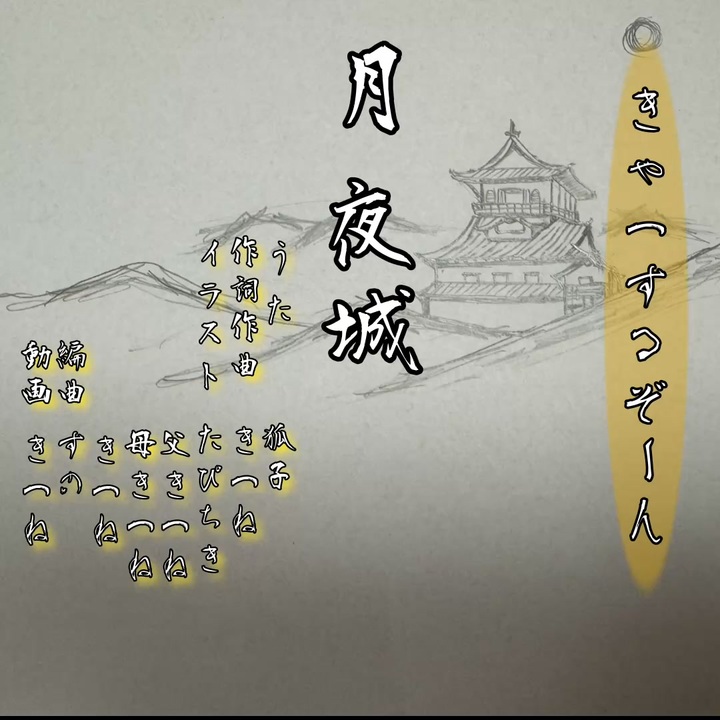 きゃっするぞーん
月夜城
うた 狐子
作詞作曲 きつね
イラスト たぴちき
父きつね
母きつね
きつね
編曲 すの
動画 きつね